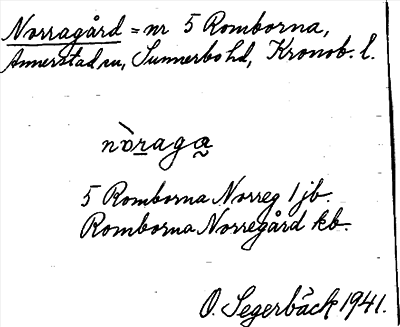 Norragård = nr 5 Romborna,
Annerstad sn, Sunnerbo hd, Kronob. l.
nòraga̰
5 Romborna Norreg 1 jb.
Romborna Norregård kb.
O. Segerbäck 1941.